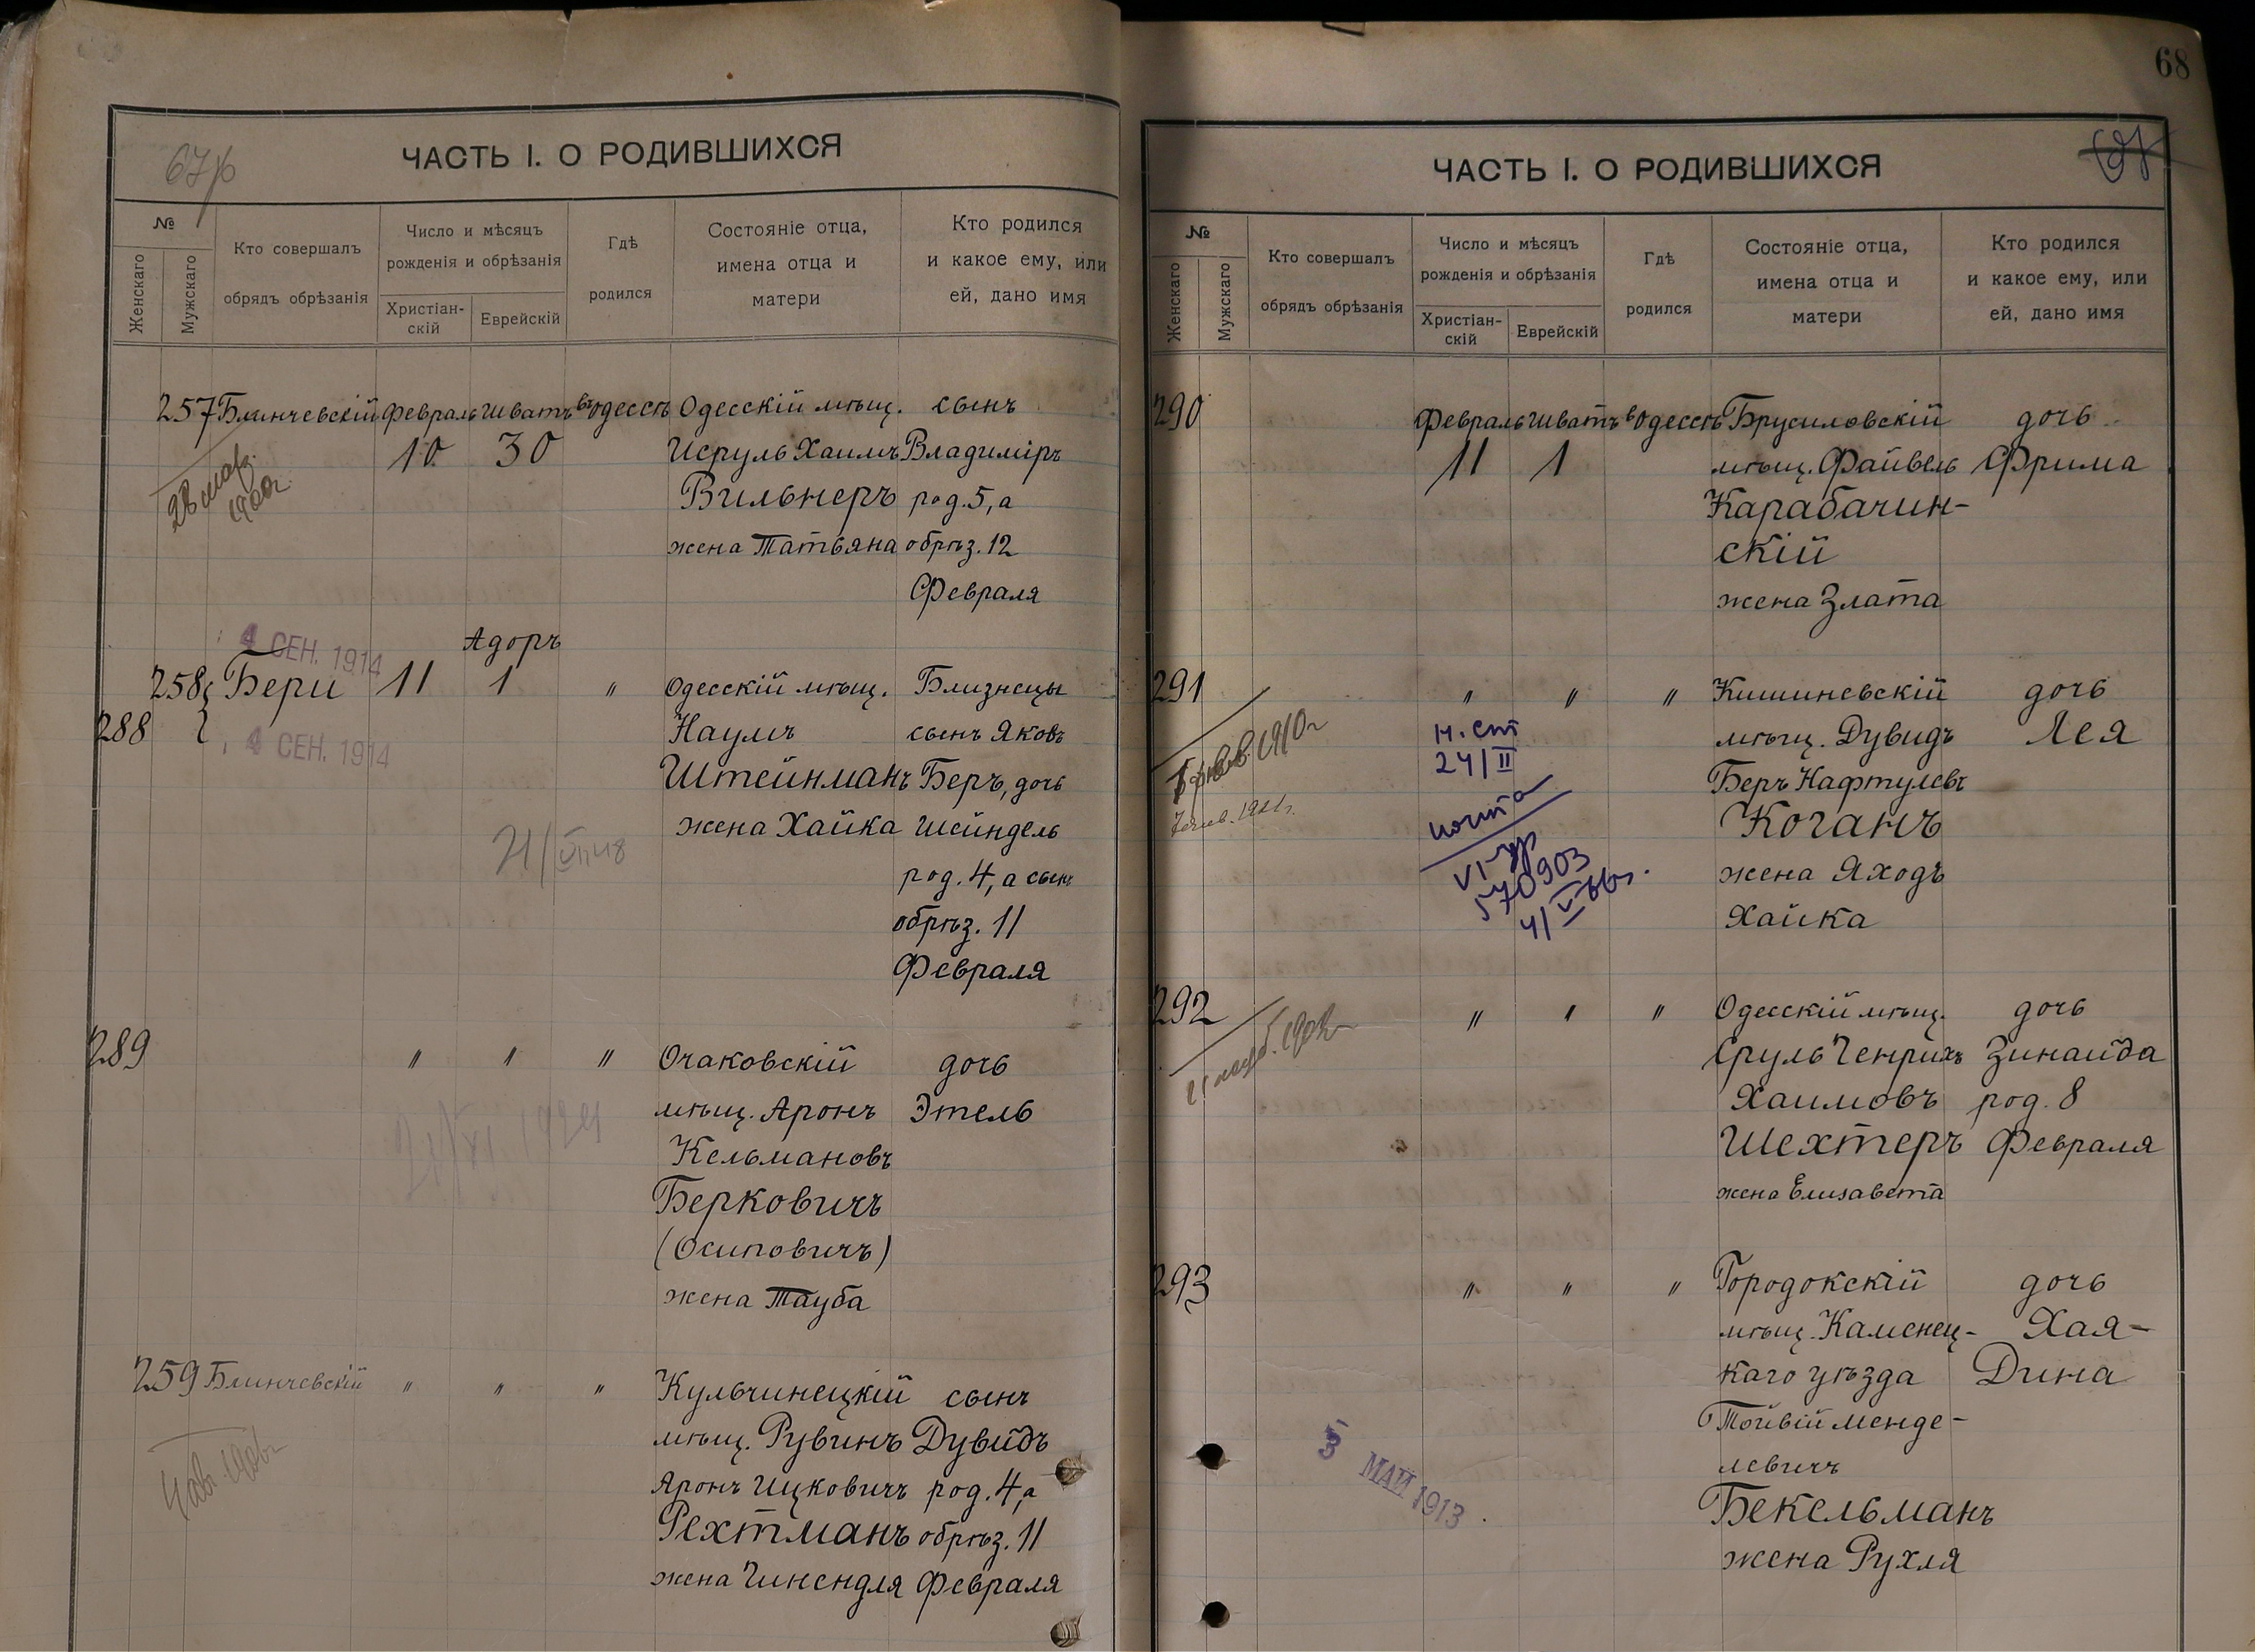 ЧАСТЬ I. О РОДИВШИХСЯ
№
Женскаго
Мужскаго
Кто совершалъ
обрядъ обрѣзанія
Число и мѣсяцъ
рожденія и обрѣзанія
Христіан-
скій
Еврейскій
Гдѣ
родился
Состояніе отца,
имена отца и
матери
Кто родился
и какое ему, или
ей, дано имя
257 Блинчевскій Февраль Шватъ въ Одессѣ Одесскій мѣщ. сынъ
10 30 Исруль Хаимъ Владиміръ
Вильнеръ род. 5, а
жена Татьяна обрѣз. 12
Февраля
4 СЕН. 1914
Адоръ
258 Бери 11 1 " Одесскій мѣщ. Близнецы
288 Наумъ сынъ Яковъ
4 СЕН. 1914
Штейнманъ Беръ, дочь
жена Хайка Шейндель
род. 4, а сынъ
обрѣз. 11
Февраля
289 " " " Очаковскій дочь
мѣщ. Аронъ Этель
Кельмановъ
Берковичъ
(Осиповичъ)
жена Тауба
259 Блинчевскій " " " Кульчинецкій сынъ
мѣщ. Рувинъ Дувидъ
Аронъ Ицковичъ род. 4, а
Рехтманъ обрѣз. 11
жена Гинендля Февраля
68
ЧАСТЬ I. О РОДИВШИХСЯ
№
Женскаго
Мужскаго
Кто совершалъ
обрядъ обрѣзанія
Число и мѣсяцъ
рожденія и обрѣзанія
Христіан-
скій
Еврейскій
Гдѣ
родился
Состояніе отца,
имена отца и
матери
Кто родился
и какое ему, или
ей, дано имя
290 Февраль Шватъ въ Одессѣ Брусиловскій дочь
11 1 мѣщ. Файвель Фрима
Карабачин-
скій
жена Злата
291 " " " Кишиневскій дочь
н. ст мѣщ. Дувидъ Лея
24/II
Беръ Нафтулевъ
Коганъ
жена Яходъ
Хайка
570903
292 " " " Одесскій мѣщ. дочь
Сруль Генрихъ Зинаида
Хаимовъ род. 8
Шехтеръ Февраля
жена Елизавета
293 " " " Городокскій дочь
мѣщ. Каменец- Хая-
каго уѣзда Дина
Тойвій Менде-
левичъ
3 МАЙ 1913
Бекельманъ
жена Рухля